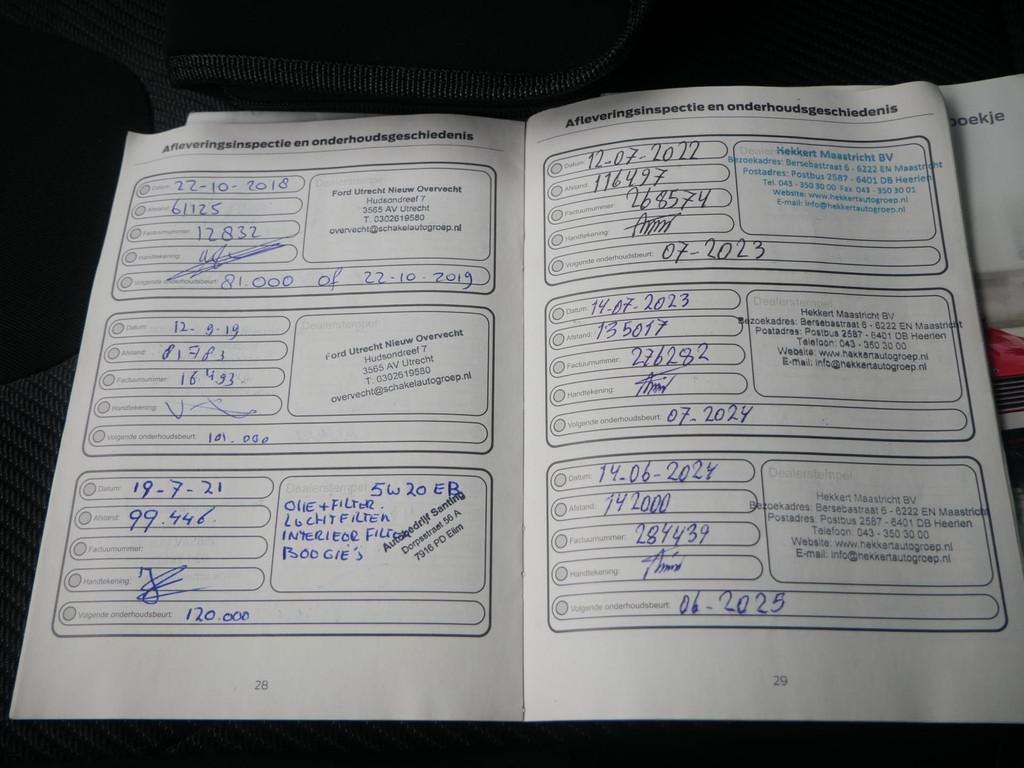 Afleveringsinspectie en onderhoudsgeschiedenis
Datum: 22-10-2018
Afstand: 61125
Factuurnummer: 12832
Handtekening:
Volgende onderhoudsbeurt: 81.000 of 22-10-2019
Dealerstempel
Ford Utrecht Nieuw Overvecht
Hudsondreef 7
3565 AV Utrecht
T: 0302619580
overvecht@schakelautogroep.nl
Datum: 12-9-19
Afstand: 81783
Factuurnummer: 16493
Handtekening:
Volgende onderhoudsbeurt: 101.000
Dealerstempel
Ford Utrecht Nieuw Overvecht
Hudsondreef 7
3565 AV Utrecht
T: 0302619580
overvecht@schakelautogroep.nl
Datum: 19-7-21
Afstand: 99.446
Factuurnummer:
Handtekening:
Volgende onderhoudsbeurt: 120.000
Dealerstempel
5W20 EB
OLIE + FILTER.
LUCHTFILTER
INTERIEUR FILTER
BOOGIE'S
Autobedrijf Santing
Dorpsstraat 56 A
7916 PD Elim
28
Afleveringsinspectie en onderhoudsgeschiedenis
Datum: 12-07-2022
Afstand: 116497
Factuurnummer: 268574
Handtekening:
Volgende onderhoudsbeurt: 07-2023
Hekkert Maastricht BV
Bezoekadres: Bersebastraat 6 - 6222 EN Maastricht
Postadres: Postbus 2587 - 6401 DB Heerlen
Tel. 043 - 350 30 00 Fax 043 - 350 30 01
Website: www.hekkertautogroep.nl
E-mail: info@hekkertautogroep.nl
Datum: 14-07-2023
Afstand: 135017
Factuurnummer: 276282
Handtekening:
Volgende onderhoudsbeurt: 07-2024
Dealerstempel
Hekkert Maastricht BV
Bezoekadres: Bersebastraat 6 - 6222 EN Maastricht
Postadres: Postbus 2587 - 6401 DB Heerlen
Telefoon: 043 - 350 30 00
Website: www.hekkertautogroep.nl
E-mail: info@hekkertautogroep.nl
Datum: 14-06-2024
Afstand: 142000
Factuurnummer: 284439
Handtekening:
Volgende onderhoudsbeurt: 06-2025
Dealerstempel
Hekkert Maastricht BV
Bezoekadres: Bersebastraat 6 - 6222 EN Maastricht
Postadres: Postbus 2587 - 6401 DB Heerlen
Telefoon: 043 - 350 30 00
Website: www.hekkertautogroep.nl
E-mail: info@hekkertautogroep.nl
29
oekje